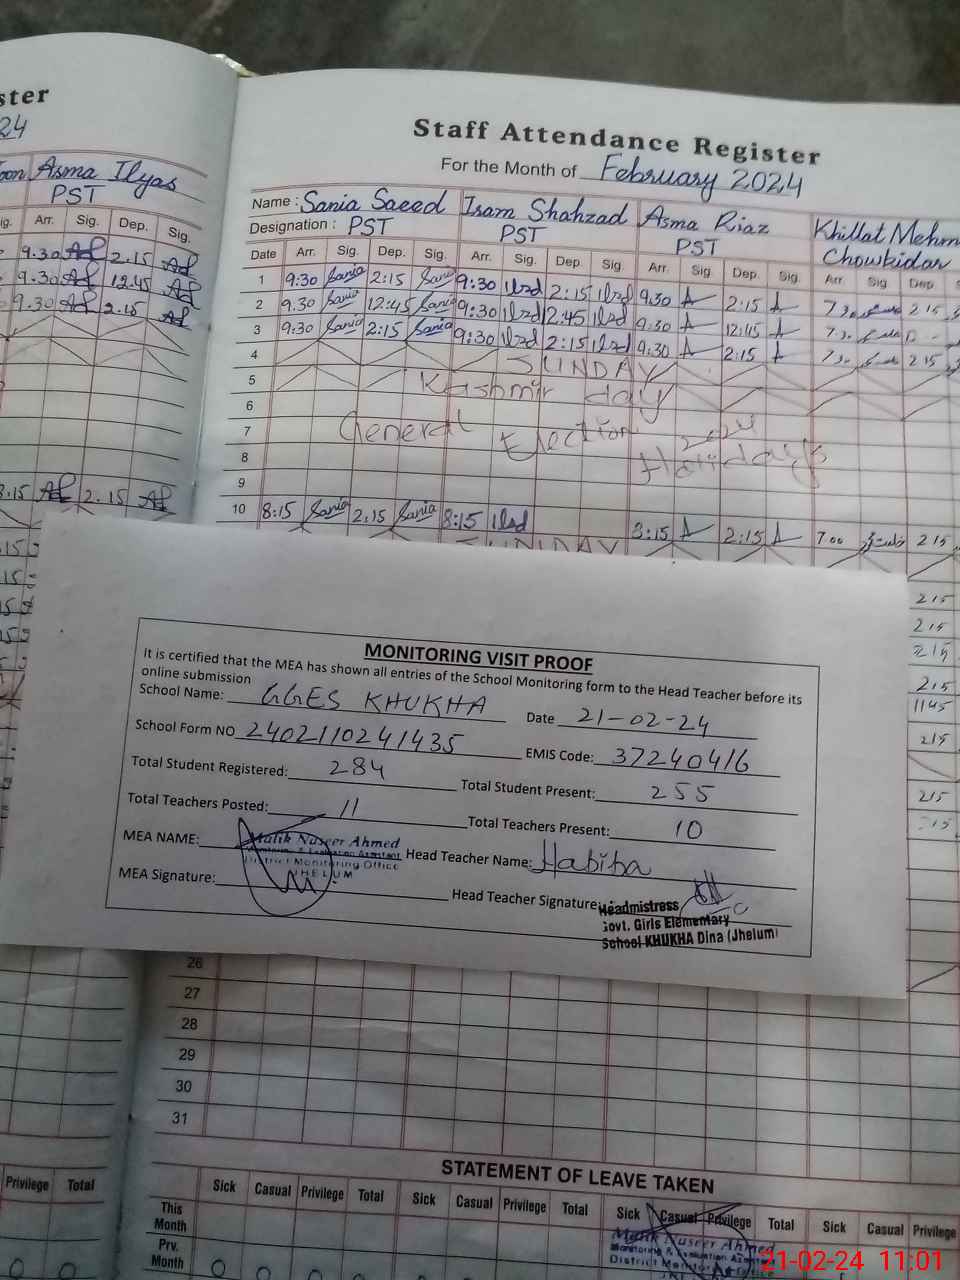 ster
24
Asma Ilyas
PST
Arr. Sig. Dep. Sig.
9.30 2.15
9.30 12.45
9.30 2.15
8:15 2.15
Staff Attendance Register
For the Month of February 2024
Name : Sania Saeed Iram Shahzad Asma Riaz Khillat Mehm
Designation : PST PST PST Chowkidar
Date Arr. Sig. Dep. Sig. Arr. Sig. Dep. Sig. Arr. Sig. Dep. Sig. Arr. Sig. Dep
1 9:30 Sania 2:15 Sania 9:30 2:15 9:30 A 2:15 A 7 30 2 15
2 9:30 Sania 12:45 Sania 9:30 2:45 9:30 A 12:15 A
3 9:30 Sania 2:15 Sania 9:30 2:15 9:30 A 2:15 A 2 15
4 SUNDAY
5 Kashmir day
6
7 General Election 2024
8 Holidays
9
10 8:15 Sania 2:15 Sania 8:15 8:15 A 2:15 A 7 00 2 15
SUNDAY
215
215
215
215
1145
215
215
215
MONITORING VISIT PROOF
It is certified that the MEA has shown all entries of the School Monitoring form to the Head Teacher before its
online submission
School Name: GGES KHUKHA Date 21-02-24
School Form NO 2402110241435 EMIS Code: 37240416
Total Student Registered: 284 Total Student Present: 255
Total Teachers Posted: 11 Total Teachers Present: 10
MEA NAME: Malik Naseer Ahmed Head Teacher Name: Habiba
Monitoring & Evaluation Assistant
District Monitoring Office
JHELUM
MEA Signature: Head Teacher Signature:
Headmistress
Govt. Girls Elementary
School KHUKHA Dina (Jhelum)
26
27
28
29
30
31
STATEMENT OF LEAVE TAKEN
Privilege Total Sick Casual Privilege Total Sick Casual Privilege Total Sick Casual Privilege Total Sick Casual Privilege
This
Month
Prv.
Month
Malik Naseer Ahmed
Monitoring & Evaluation
District Monitoring Office
21-02-24 11:01